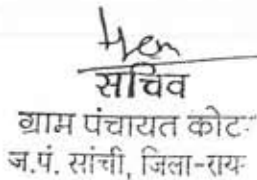 सचिव
ग्राम पंचायत कोट
ज.पं. सांची, जिला-राय